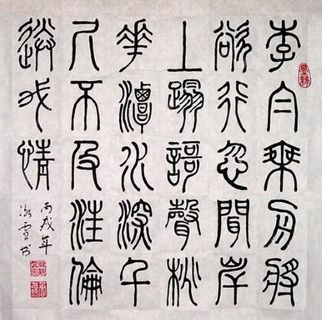 李白乘舟將
欲行忽聞岸
上蹋謌聲桃
華潭水深千
尺不及汪倫
送我情
丙戌年